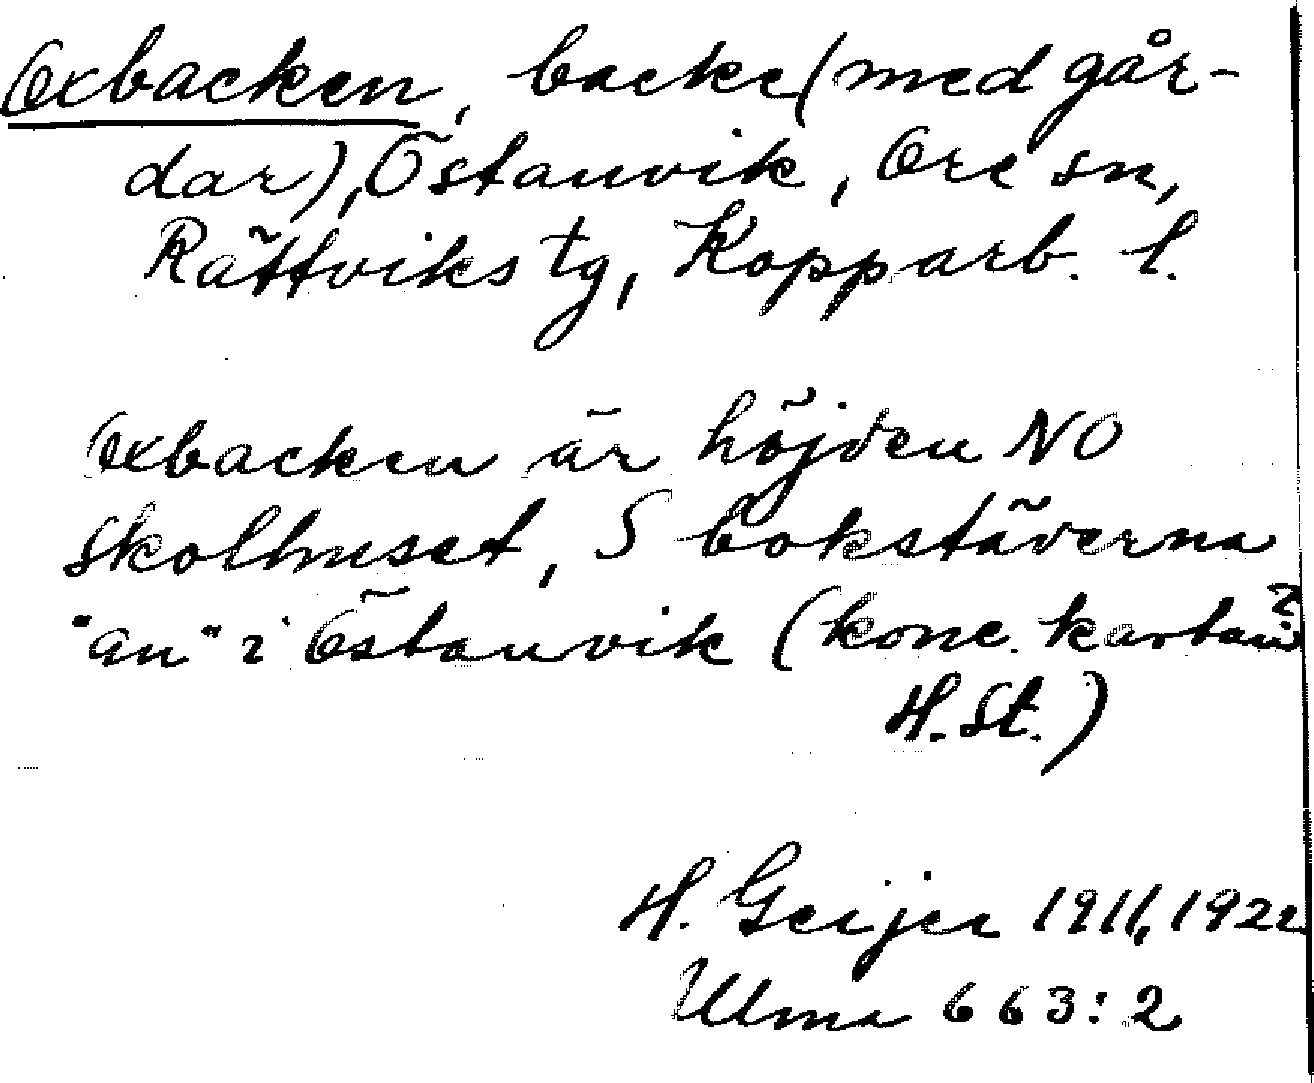 Oxbacken, backe (med går-
dar), Östanvik, Ore sn,
Rättviks tg, Kopparb. l.
Oxbacken är höjden NO
Skolhuset, S bokstäverna
"an" i Östanvik (konc. kartan?
H. St.)
H. Geijer 1911, 1922
Ulma 663:2